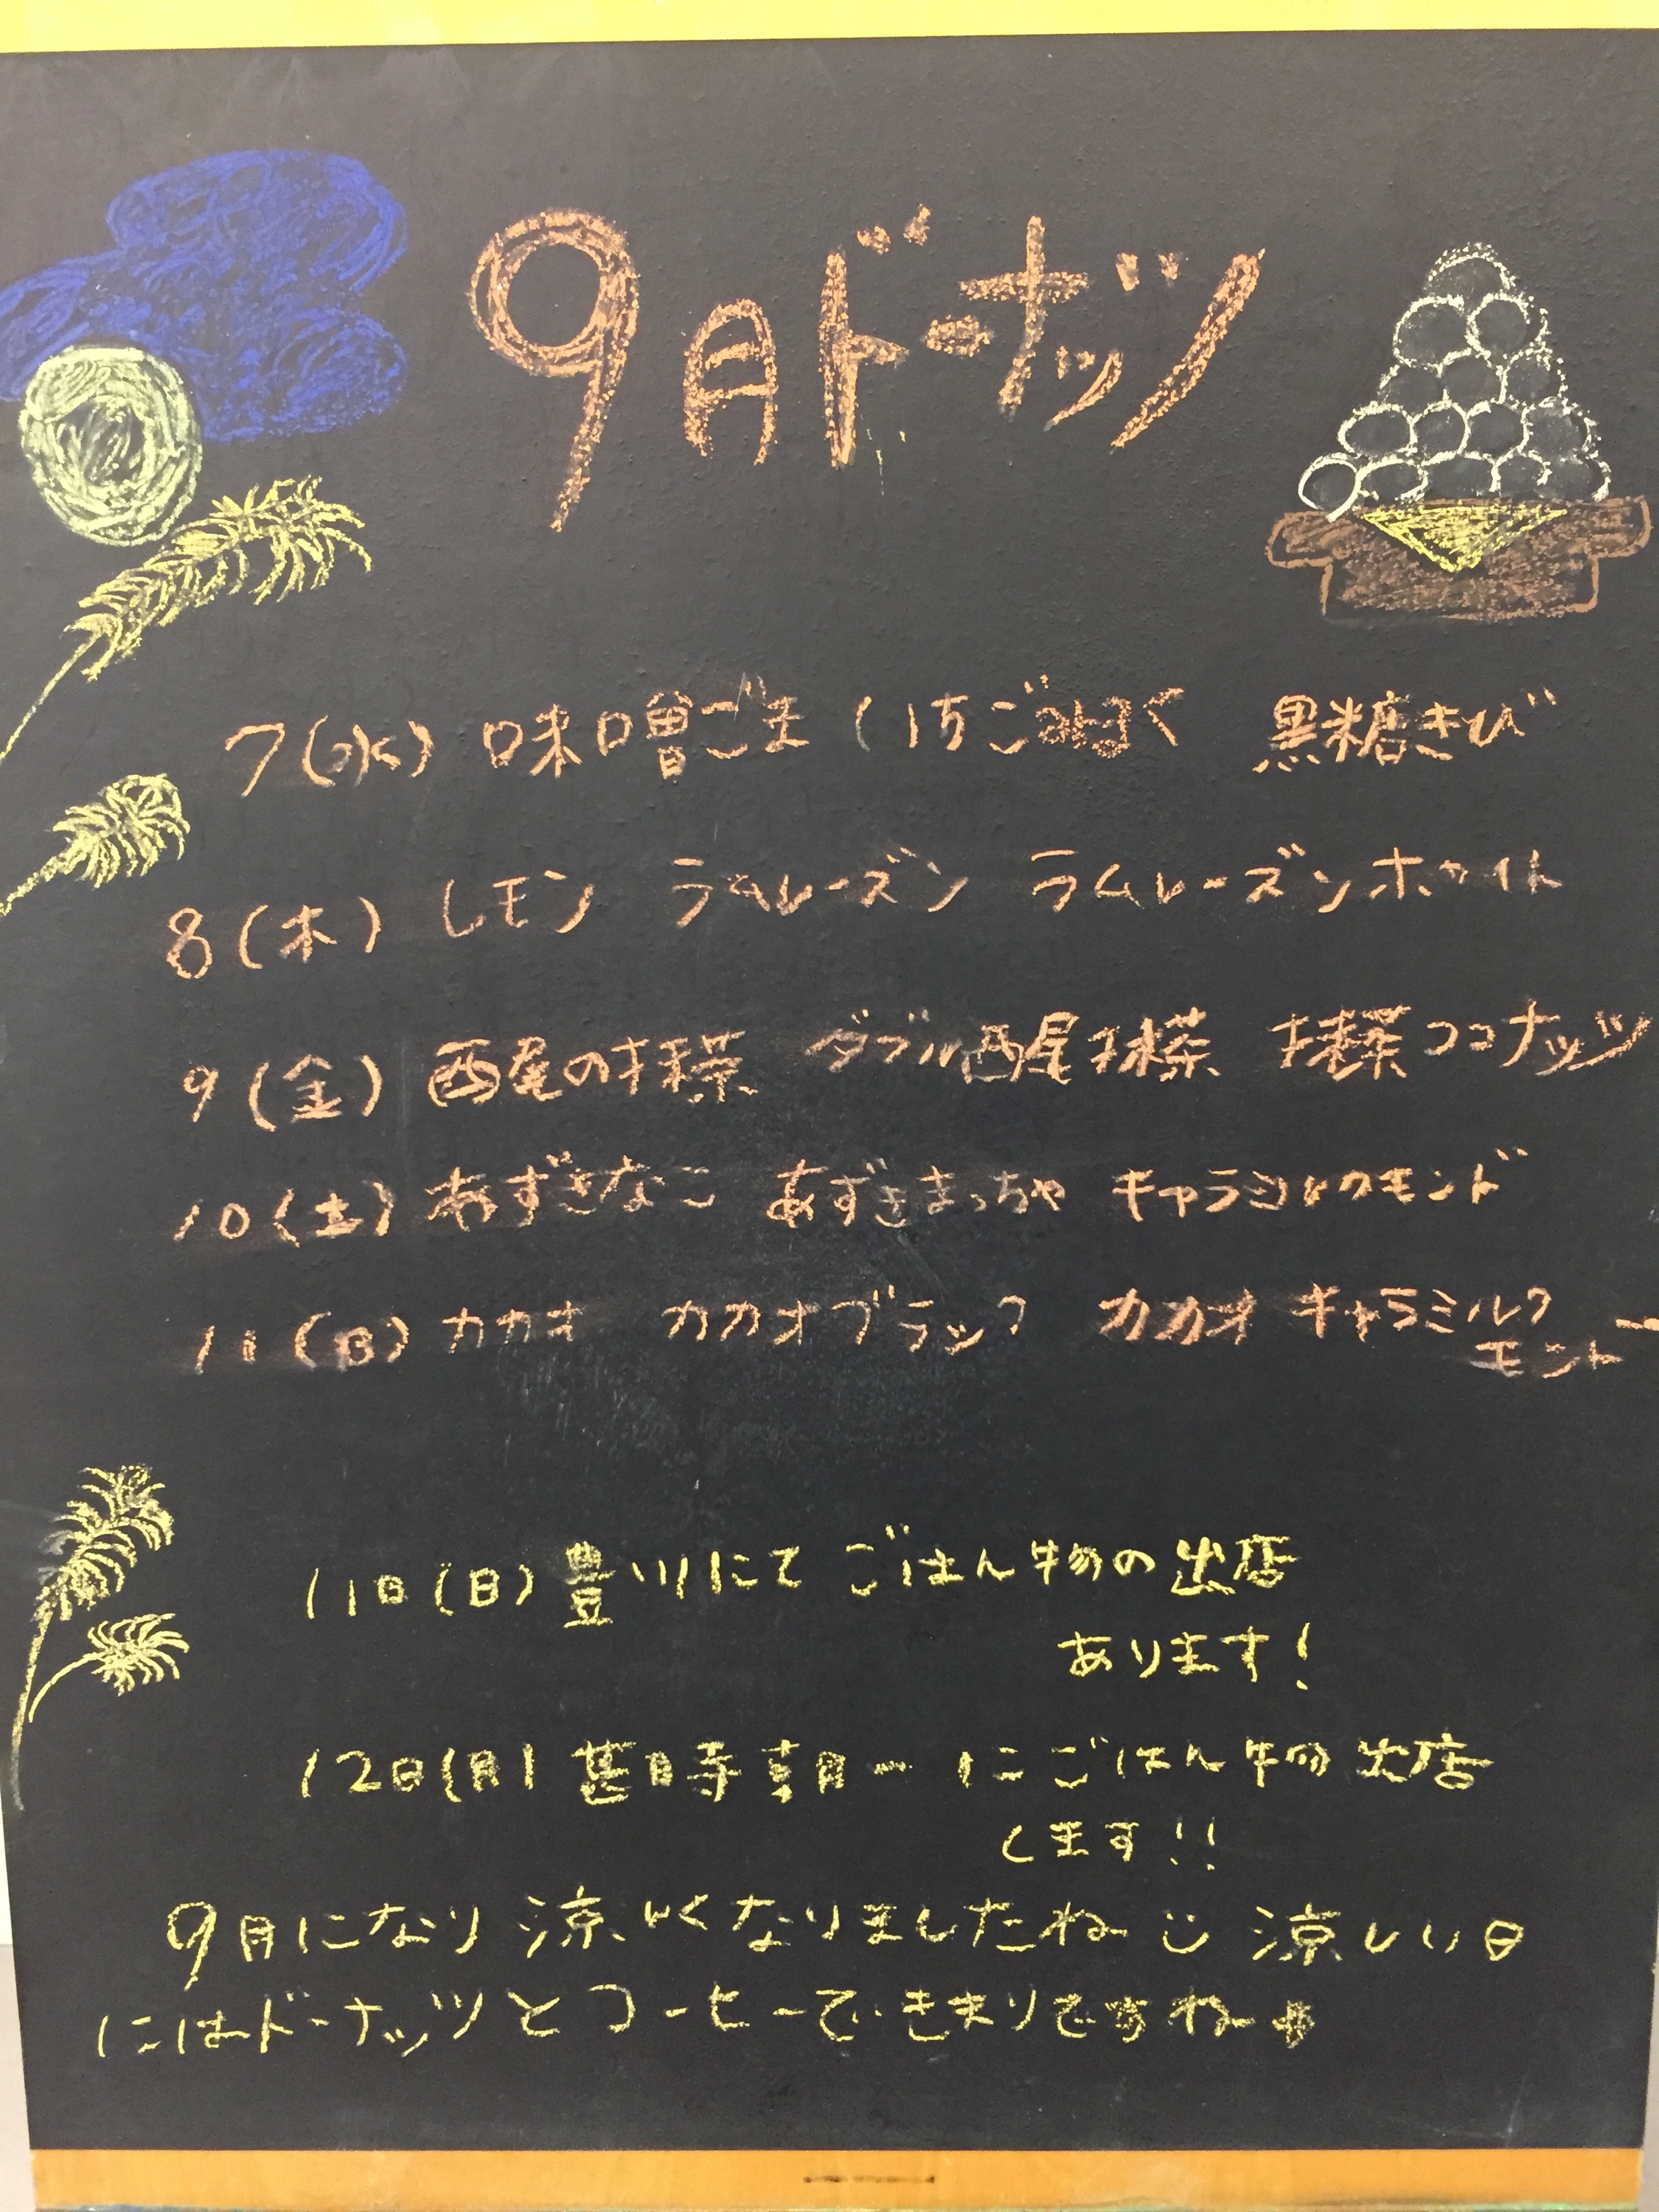 9月ドーナツ
7(水) 味噌ごま いちごみるく 黒糖きび
8(木) レモン ラムレーズン ラムレーズンホワイト
9(金) 西尾の抹茶 ダブル西尾抹茶 抹茶ココナッツ
10(土) あずきなこ あずきまっちゃ キャラミルクモンド
11(日) カカオ カカオブラック カカオキャラミルク
モンド
11日(日) 豊川にて ごはん物の出店
あります!
12日(月) 甚目寺朝一にごはん物出店
します!!
9月になり 涼しくなりましたね 涼しい日
にはドーナッツとコーヒーできまりですね